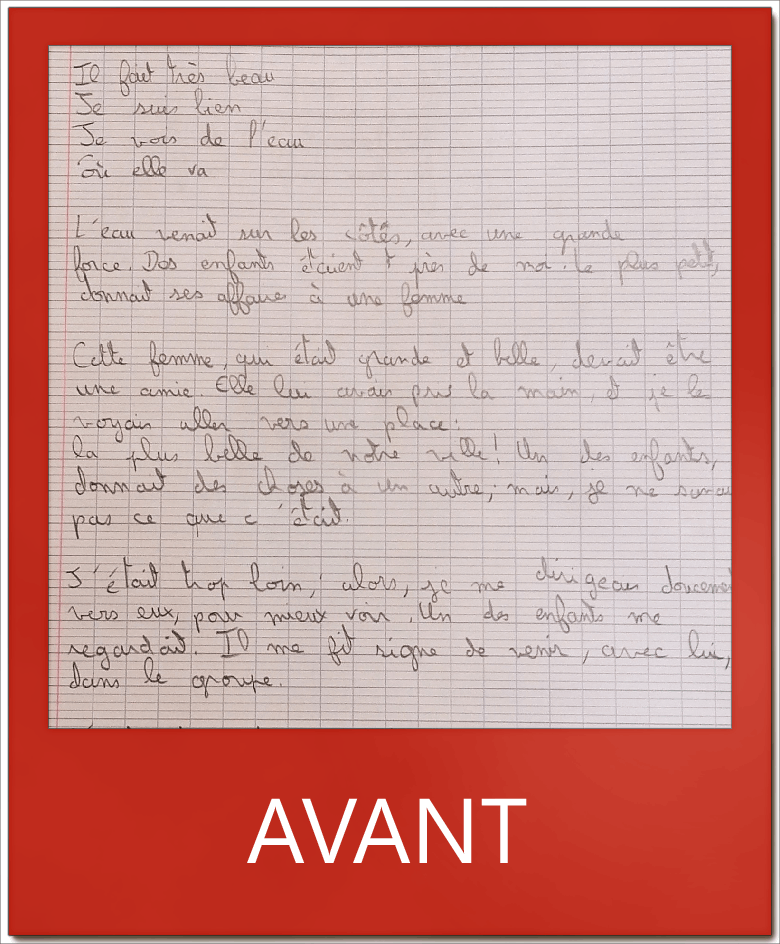 Il fait très beau
Je suis bien
Je vois de l'eau
Où elle va
L'eau venait sur les côtés, avec une grande
force. Des enfants étaient près de moi. Le plus petit,
donnait ses affaires à une femme
Cette femme, qui était grande et belle, devait être
une amie. Elle lui avais pris la main, et je le
voyais aller vers une place:
la plus belle de notre ville! Un des enfants,
donnait des choses à un autre; mais, je ne savais
pas ce que c'était.
J'étais trop loin; alors, je me dirigeais doucement
vers eux, pour mieux voir. Un des enfants me
regardait. Il me fit signe de venir, avec lui,
dans le groupe.
AVANT